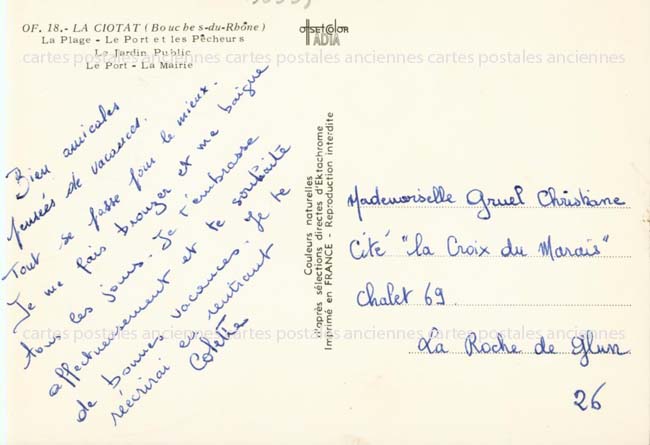 OF. 18.- LA CIOTAT (Bouches-du-Rhône)
La Plage - Le Port et les Pêcheurs
Le Jardin Public
Le Port - La Mairie
OffsetColor
ADIA
cartes postales anciennes cartes postales anciennes cartes postales anciennes
Bien amicales
pensées de vacances.
Tout se passe pour le mieux.
Je me fais bronzer et me baigne
tous les jours. Je t'embrasse
affectueusement et te souhaite
de bonnes vacances. Je te
réécrirai en rentrant
Colette
Couleurs naturelles
D'après sélections directes d'Ektachrome
Imprimé en FRANCE - Reproduction interdite
Mademoiselle Gruel Christiane
Cité "la Croix du Marais"
Chalet 69.
La Roche de Glun
26
cartes postales anciennes cartes postales anciennes cartes postales anciennes
cartes postales anciennes cartes postales anciennes cartes postales anciennes